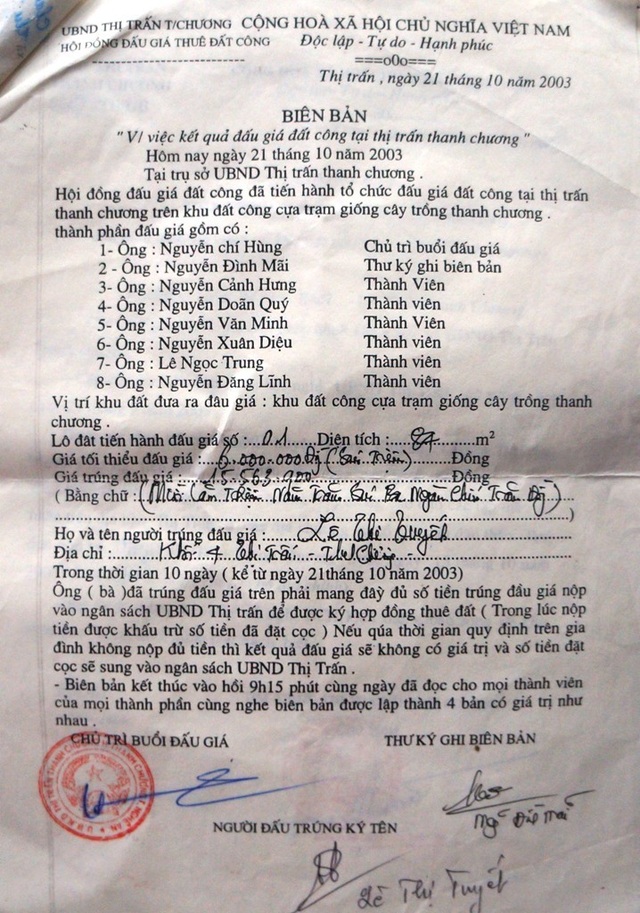 UBND THỊ TRẤN T/CHƯƠNG CỘNG HOÀ XÃ HỘI CHỦ NGHĨA VIỆT NAM
HỘI ĐỒNG ĐẤU GIÁ THUÊ ĐẤT CÔNG Độc lập - Tự do - Hạnh phúc
===o0o===
Thị trấn , ngày 21 tháng 10 năm 2003
BIÊN BẢN
" V/ việc kết quả đấu giá đất công tại thị trấn thanh chương "
Hôm nay ngày 21 tháng 10 năm 2003
Tại trụ sở UBND Thị trấn thanh chương .
Hội đồng đấu giá đất công đã tiến hành tổ chức đấu giá đất công tại thị trấn
thanh chương trên khu đất công cựa trạm giống cây trồng thanh chương .
thành phần đấu giá gồm có :
1- Ông : Nguyễn chí Hùng Chủ trì buổi đấu giá
2 - Ông : Nguyễn Đình Mãi Thư ký ghi biên bản
3- Ông : Nguyễn Cảnh Hưng Thành Viên
4- Ông : Nguyễn Doãn Quý Thành viên
5- Ông : Nguyễn Văn Minh Thành Viên
6- Ông : Nguyễn Xuân Diệu Thành viên
7- Ông : Lê Ngọc Trung Thành viên
8- Ông : Nguyễn Đăng Lĩnh Thành viên
Vị trí khu đất đưa ra đâu giá : khu đất công cựa trạm giống cây trồng thanh
chương .
Lô đât tiến hành đấu giá số : 01 Diện tích : 84 m²
Giá tối thiểu đấu giá : 6.000.000đ (Sáu Triệu) Đồng
Giá trúng đấu giá : 15.563.900 Đồng
( Bằng chữ : (Mười Lăm Triệu Năm Trăm Sáu Ba Ngàn Chín Trăm Đồng)
)
Họ và tên người trúng đấu giá : Lê Thị Tuyết
Địa chỉ : Khối 4 Thị Trấn -
Trong thời gian 10 ngày ( kể từ ngày 21tháng 10 năm 2003)
Ông ( bà )đã trúng đấu giá trên phải mang đầy đủ số tiền trúng đấu giá nộp
vào ngân sách UBND Thị trấn để được ký hợp đồng thuê đất ( Trong lúc nộp
tiền được khấu trừ số tiền đã đặt cọc ) Nếu qúa thời gian quy định trên gia
đình không nộp đủ tiền thì kết quả đấu giá sẽ không có giá trị và số tiền đặt
cọc sẽ sung vào ngân sách UBND Thị Trấn .
- Biên bản kết thúc vào hồi 9h15 phút cùng ngày đã đọc cho mọi thành viên
của mọi thành phần cùng nghe biên bản được lập thành 4 bản có giá trị như
nhau .
CHỦ TRÌ BUỔI ĐẤU GIÁ THƯ KÝ GHI BIÊN BẢN
NGƯỜI ĐẤU TRÚNG KÝ TÊN
Lê Thị Tuyết